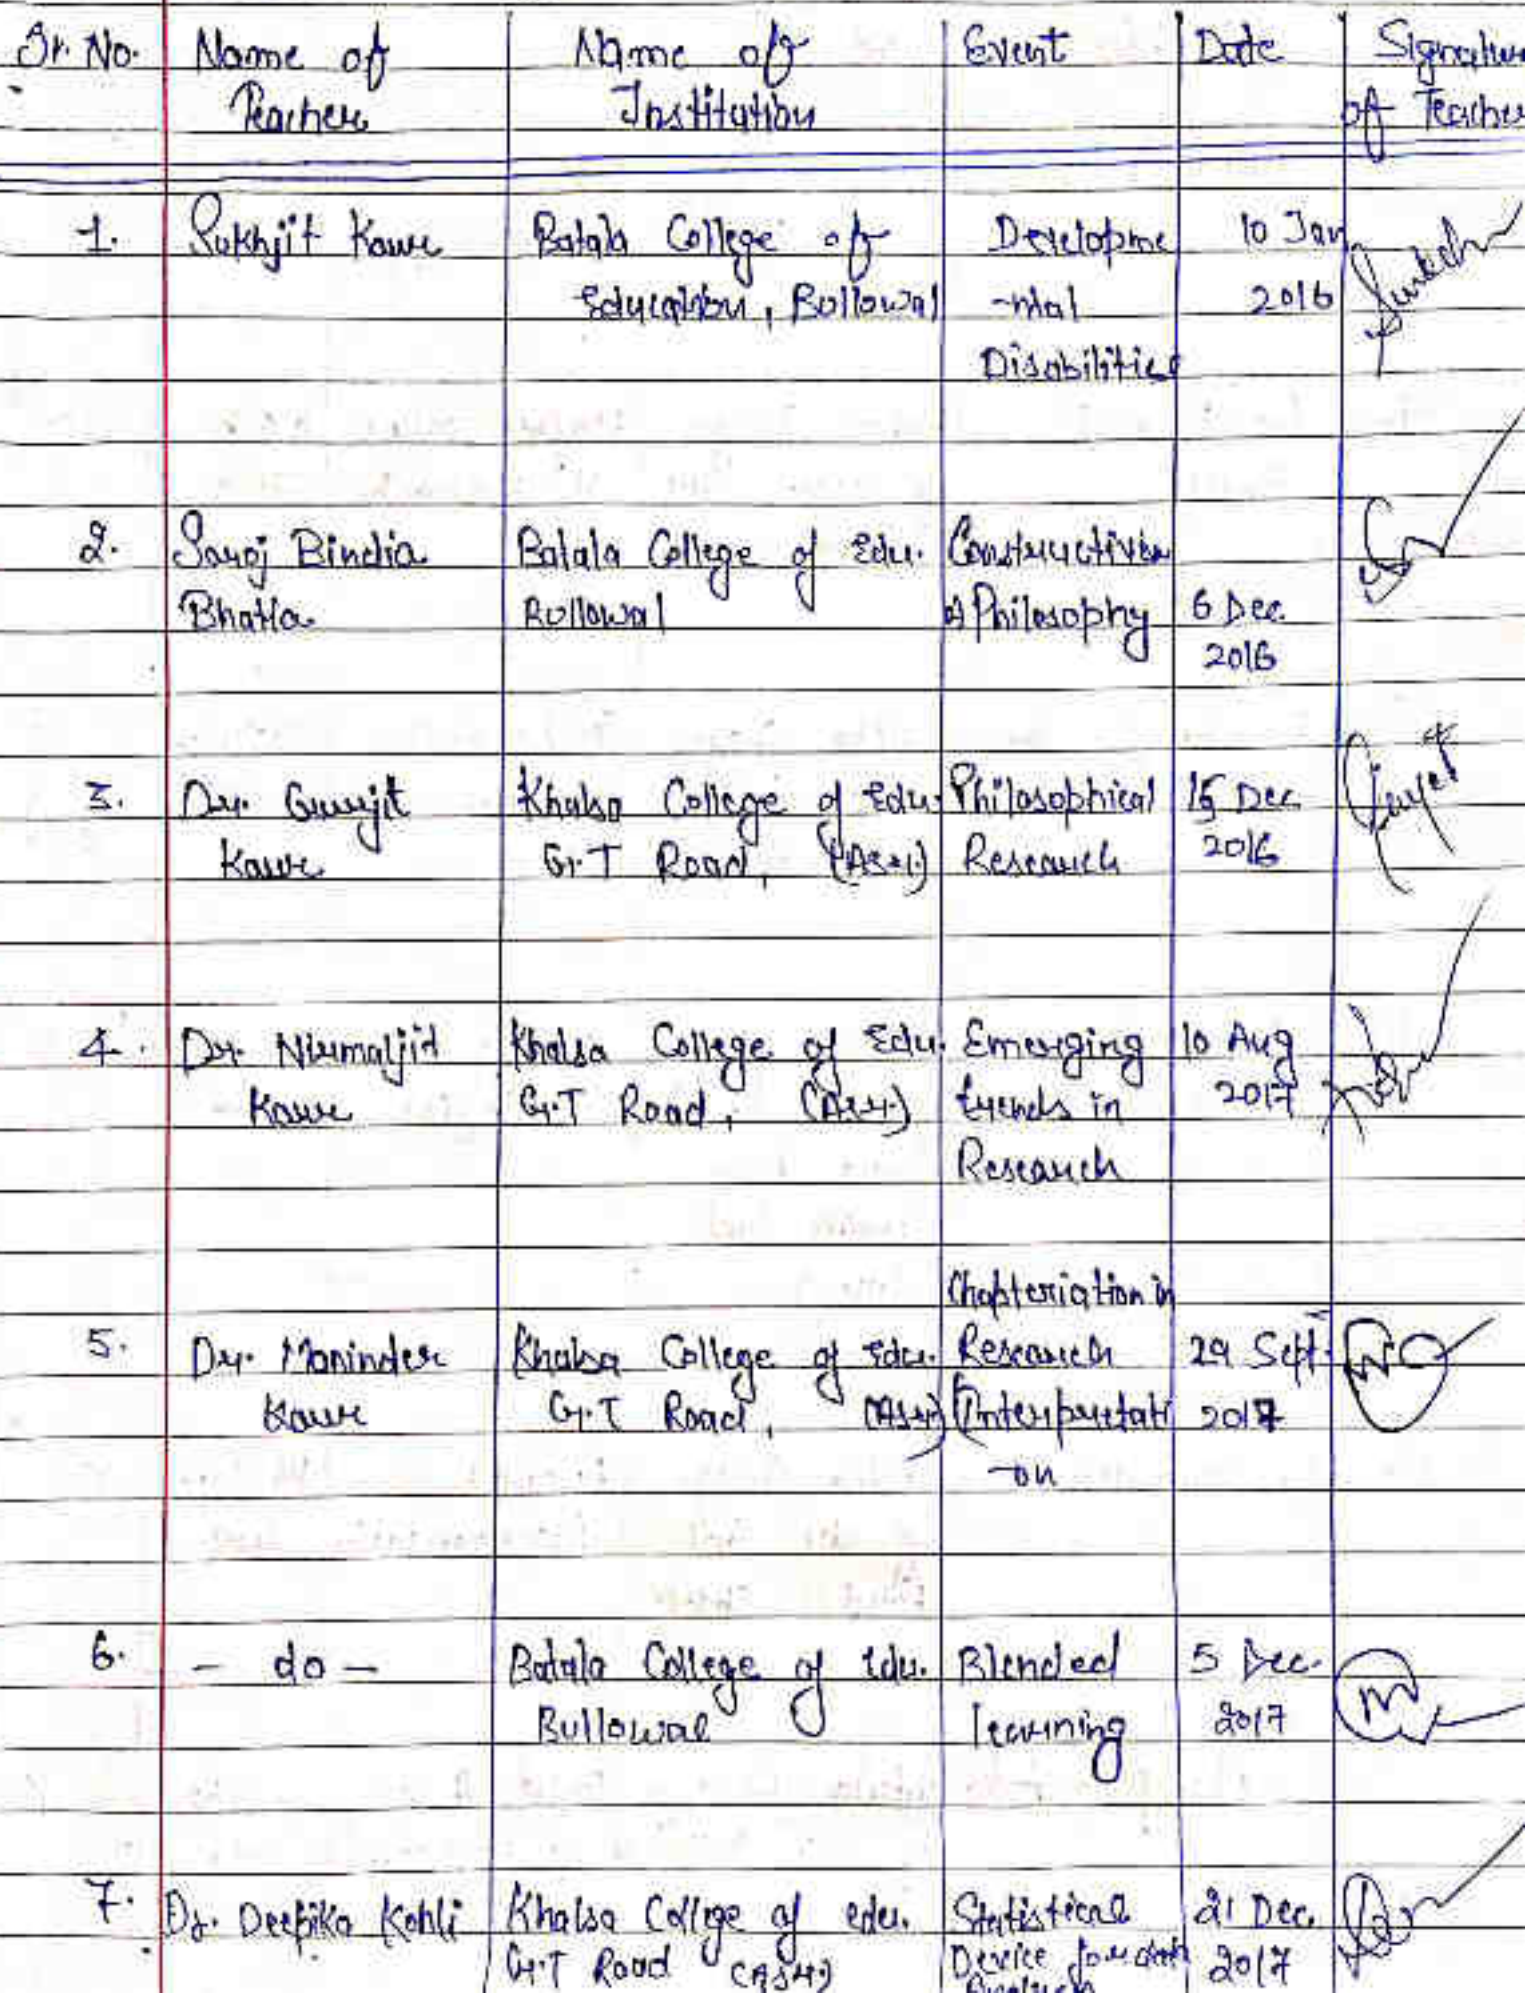 Sr. No. Name of Teacher Name of Institution Event Date Signature of Teacher
1. Sukhjit Kaur Batala College of Education, Bullowal Developme -ntal Disabilities 10 Jan 2016
2. Saroj Bindia Bhatla Batala College of Edu. Bullowal Constructivism Philosophy 6 Dec. 2016
3. Dr. Gurjit Kaur Khalsa College of Edu. G.T Road, (Asr.) Philosophical Research 15 Dec. 2016
4. Dr. Nirmaljit Kaur Khalsa College of Edu. G.T Road, (Asr.) Emerging trends in Research 10 Aug 2017
5. Dr. Maninder Kaur Khalsa College of Edu. G.T Road, (Asr.) Chapteriation in Research Interpretati -on 29 Sept. 2017
6. - do - Batala College of Edu. Bullowal Blended learning 5 Dec. 2017
7. Dr. Deepika Kohli Khalsa College of edu. G.T Road (ASR) Statistical Device for data Analysis 21 Dec. 2017